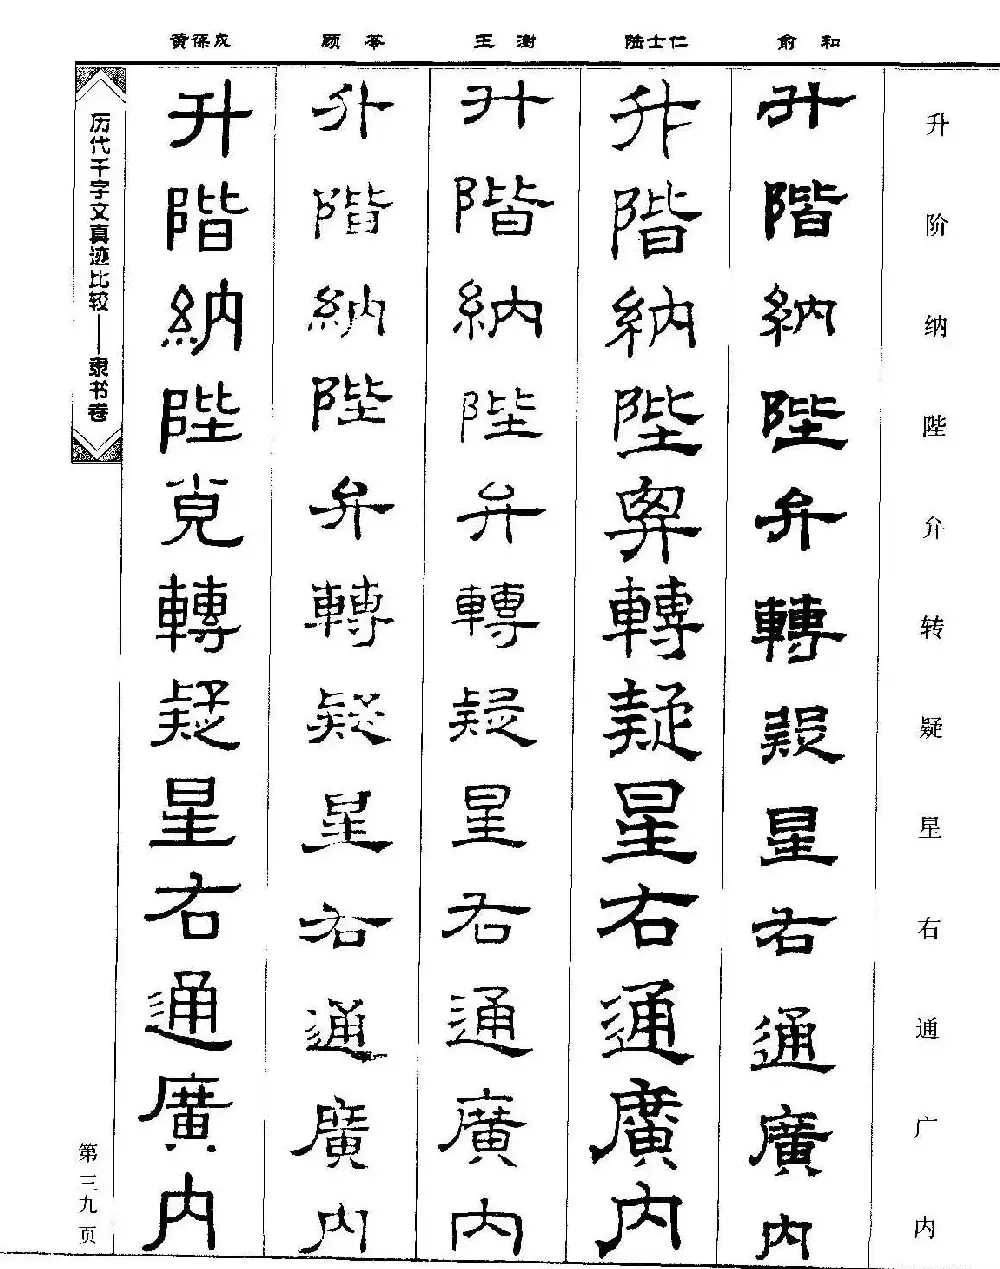 黄葆戉 顾苓 王澍 陆士仁 俞和
升阶纳陛介转疑星右通广内
升階納陛弁轉疑星右通廣内
升階納陛轉疑星右通廣内
升階納陛弁轉疑星右通廣内
升階納陛弁轉疑星右通廣内
升階納陛覍轉疑星右通廣内
历代千字文真迹比较——隶书卷
第三九页